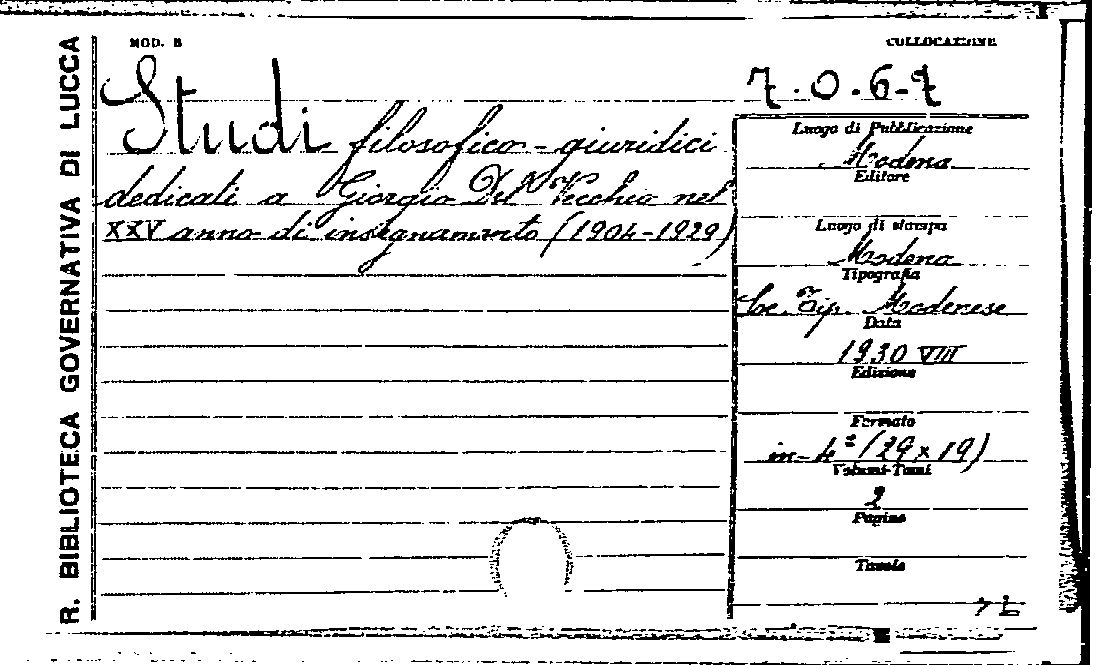 R. BIBLIOTECA GOVERNATIVA DI LUCCA
MOD. B
COLLOCAZIONE
7.0.6-7
Studi filosofico-giuridici
dedicati a Giorgio Del Vecchio nel
XXV anno di insegnamento (1904-1929)
Luogo di Pubblicazione
Modena
Editore
Luogo di stampa
Modena
Tipografia
Soc. Tip. Modenese
Data
1930 VIII
Edizione
Formato
in-4° (29 x 19)
Volumi-Tomi
2
Pagine
Tavole